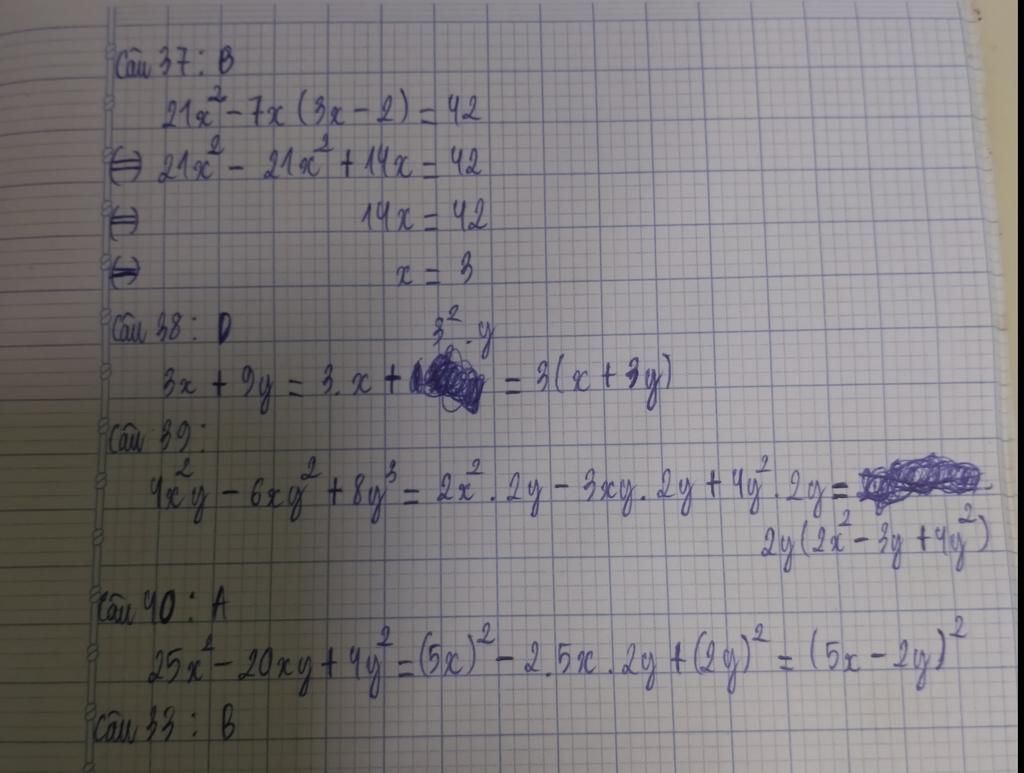 Câu 37: B
21x² - 7x (3x - 2) = 42
⇔ 21x² - 21x² + 14x = 42
⇔ 14x = 42
⇔ x = 3
Câu 38: D
3x + 9y = 3.x + 3².y = 3(x + 3y)
Câu 39:
4x²y - 6xy² + 8y³ = 2x².2y - 3xy.2y + 4y².2y =
2y(2x² - 3y + 4y²)
Câu 40: A
25x² - 20xy + 4y² = (5x)² - 2.5x.2y + (2y)² = (5x - 2y)²
Câu 33: B